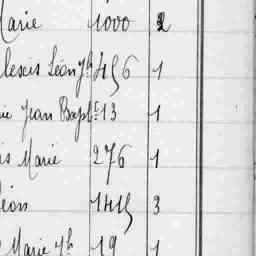 Marie 1000 2
lexis Léon Jh 456 1
ie Jean Bapte 13 1
is Marie 276 1
Léon 1415 3
Marie Jh 19 1